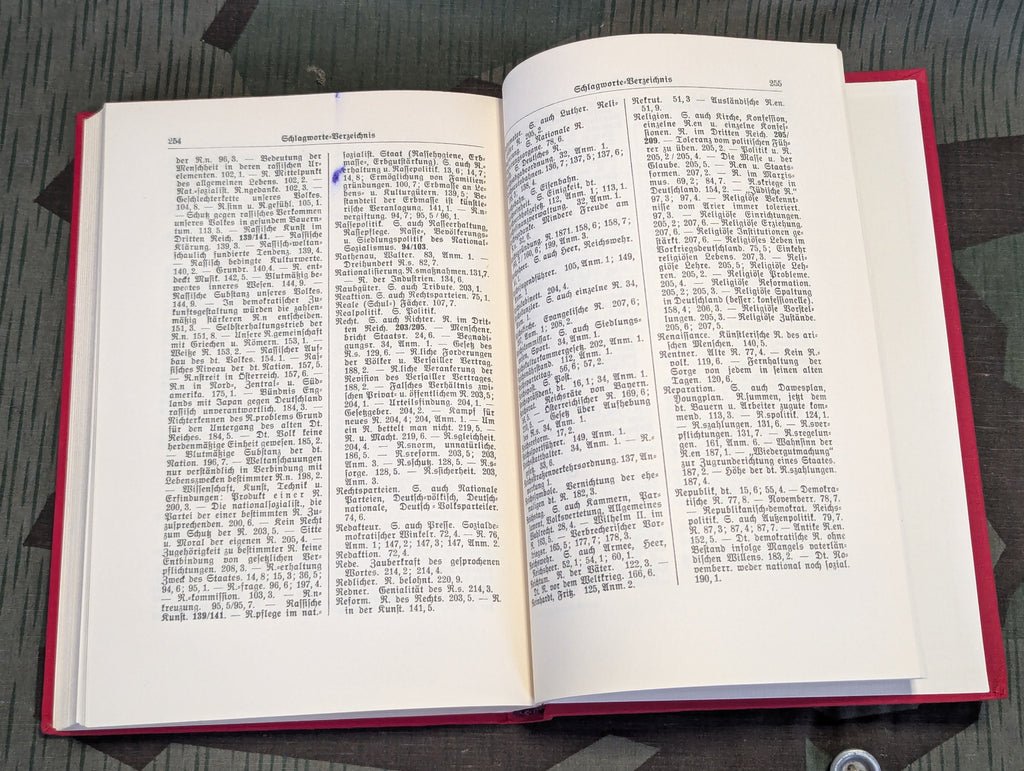 254
Schlagworte-Verzeichnis
der R.n. 96, 3. — Bedeutung der
Menschheit in deren rassischen Ur-
elementen. 102, 1. — R. Mittelpunkt
des allgemeinen Lebens. 102, 2. —
Nat.-sozialist. R.ngedanke. 102, 3. —
Geschlechterkette unseres Volkes.
104, 8. — R.sinn u. R.gefühl. 105, 1.
— Schutz gegen rassisches Verkommen
unseres Volkes in gesundem Bauern-
tum. 113, 5. — Rassische Kunst im
Dritten Reich. 139/141. — Rassische
Klärung. 139, 3. — Rassisch-weltan-
schaulich fundierte Tendenz. 139, 4.
— Rassisch bedingte Kulturwerte.
140, 2. — Grundr. 140, 4. — R. ent-
deckt Musik. 142, 5. — Blutmäßig be-
wegtes inneres Wesen. 144, 9. —
Rassische Substanz unseres Volkes.
144, 9. — In demokratischer Zu-
kunftsgestaltung würden die zahlen-
mäßig stärkeren R.n entscheiden.
151, 3. — Selbsterhaltungstrieb der
R.n. 151, 8. — Unsere R.gemeinschaft
mit Griechen u. Römern. 153, 1. —
Weiße R. 153, 2. — Rassischer Auf-
bau des dt. Volkes. 154, 1. — Ras-
sisches Niveau der dt. Nation. 157, 5.
— R.nstreit in Österreich. 157, 6. —
R.n in Nord-, Zentral- u. Süd-
amerika. 175, 1. — Bündnis Eng-
lands mit Japan gegen Deutschland
rassisch unverantwortlich. 184, 3. —
Richterkennen des R.problems Grund
für den Untergang des alten Dt.
Reiches. 184, 5. — Dt. Volk keine
herdenmäßige Einheit gewesen. 185, 2.
— Blutmäßige Substanz der dt.
Nation. 196, 7. — Weltanschauungen
nur verständlich in Verbindung mit
Lebenszwecken bestimmter R.n. 198, 2.
— Wissenschaft, Kunst, Technik u.
Erfindungen: Produkt einer R.
200, 3. — Die nationalsozialist., die
Partei der einer bestimmten R. Zu-
zusprechenden. 200, 6. — Kein Recht
zum Schutz der R. 203, 5. — Sitte
u. Moral der eigenen R. 205, 4. —
Zugehörigkeit zu bestimmter R. keine
Entbindung von gesetzlichen Ver-
pflichtungen. 208, 3. — R.erhaltung
Zweck des Staates. 14, 8; 15, 3; 36, 5;
94, 6; 95, 1. — R.frage. 96, 6; 197, 4.
— R.-kommission. 103, 3. — R.n-
kreuzung. 95, 5/95, 7. — Rassische
Kunst. 139/141. — R.pflege im nat.-
sozialist. Staat (Rassehygiene, Erb-
masse, Erbgutstärkung). S. auch R.-
erhaltung u. Rassepolitik. 13, 6; 14, 7;
14, 8; Ermöglichung von Familien-
gründungen. 100, 7; Erbmasse an Le-
bens- u. Kulturgütern. 139, 5; Be-
standteil der Erbmasse ist künstle-
rische Veranlagung. 141, 1. — R.n-
vergiftung. 94, 7; 95, 5/96, 1.
Rassepolitik. S. auch Rasseerhaltung,
Rassepflege. Rasse-, Bevölkerungs-
u. Siedlungspolitik des National-
Sozialismus. 94/103.
Rathenau, Walter. 83, Anm. 1. —
Dreihundert R.s. 82, 7.
Rationalisierung. R.smaßnahmen. 131, 7.
— R. der Industrien. 134, 6.
Raubgüter. S. auch Tribute. 203, 1.
Reaktion. S. auch Rechtsparteien. 75, 1.
Reale (Schul-) Fächer. 107, 7.
Realpolitik. S. Politik.
Recht. S. auch Richter. R. im Drit-
ten Reich. 203/205. — Menschenr.
bricht Staatsr. 24, 6. — Begnadi-
gungsr. 34, Anm. 1. — Gesetz des
R.s. 129, 6. — R.liche Forderungen
der Völker u. Versailler Vertrag.
188, 2. — R.liche Verankerung der
Revision des Versailler Vertrages.
188, 2. — Falsches Verhältnis zwi-
schen Privat- u. öffentlichem R. 203, 5;
204, 1. — Urteilsfindung. 204, 1. —
Gesetzgeber. 204, 2. — Kampf für
neues R. 204, 4; 204, Anm. 1. — Um
ein R. bettelt man nicht. 219, 5. —
R. u. Macht. 219, 6. — R.sgleichheit.
204, 4. — R.snorm, unnatürliche.
186, 5. — R.sreform. 203, 5; 203,
Anm. 3. — R.sschutz. 128, 5. — R.sr-
sorge. 128, 5. — R.ssicherheit. 203,
Anm. 3.
Rechtsparteien. S. auch Nationale
Parteien, Deutsch-völkisch, Deutsch-
nationale, Deutsch-Volksparteiler.
74, 6.
Redakteur. S. auch Presse. Sozialde-
mokratischer Winkelr. 72, 4. — R. 76,
Anm. 1; 147, 2; 147, 3; 147, Anm. 2.
Redaktion. 72, 4.
Rede. Zauberkraft des gesprochenen
Wortes. 214, 2; 214, 4.
Redlicher. R. belohnt. 220, 9.
Redner. Genialität des R.s. 214, 3.
Reform. R. des Rechts. 203, 5. — R.
in der Kunst. 141, 5.
Schlagworte-Verzeichnis
255
S. auch Luther. Reli-
205, 2.
S. Nationale R.
78, 6.
Deutsches R.
32, Anm. 1.
136, 7; 137, 5; 137, 6;
S. Eisenbahn.
S. Einigkeit, dt.
112, Anm. 1; 113, 1.
32, Anm. 1.
Mindere Freude am
R. 1871. 158, 6; 158, 7;
160, 6; 199, Anm. 3.
S. auch Heer, Reichswehr.
105, Anm. 1; 149,
204, 4.
S. auch einzelne R. 34,
Evangelische R. 207, 6;
Anm. 1; 208, 2.
S. auch Siedlungs-
Sport. 34, Anm. 1.
202, Anm. 1.
112, Anm. 1.
56, 6; 57, 2.
S. Post.
dt. 16, 1; 34, Anm. 1.
Reichsräte von Bayern.
Österreichischer R. 169, 6;
Gesetz über Aufhebung
des R.s. 34, Anm. 1.
17, 2.
149, Anm. 1.
34, Anm. 1. — R.-
33, 6.
137, An-
merkung 1.
Vernichtung der ehe-
maligen dt. R. 182, 3.
S. auch Kammern, Par-
lament, Volksvertretung, Allgemeines
Wahlrecht. 28, 4. — Wilhelm II. im
R. 163, 5. — Verbrecherischer Vor-
hänger. 165, 5; 177, 7; 178, 3.
S. auch Armee, Heer,
Reichsheer. 52, 1; 54, 1; 60, 1.
Reichtum. R. der Väter. 122, 3. —
Dt. R. vor dem Weltkrieg. 166, 6.
Reinhardt, Fritz. 125, Anm. 2.
Rekrut. 51, 3 — Ausländische R.en.
51, 9.
Religion. S. auch Kirche, Konfession,
einzelne R.en u. einzelne Konfes-
sionen. R. im Dritten Reich. 205/
209. — Toleranz vom politischen Füh-
rer zu üben. 205, 2. — Politik u. R.
205, 2/205, 4. — Die Masse u. der
Glaube. 205, 5. — R.en u. Staats-
formen. 207, 2. — R. im Marxis-
mus. 69, 2; 84, 7. — R.skriege in
Deutschland. 154, 2. — „Jüdische R.“
97, 3; 97, 4. — Religiöse Bekennt-
nisse vom Arier immer toleriert.
97, 3. — Religiöse Einrichtungen.
205, 2; 207, 6. — Religiöse Erziehung.
207, 6. — Religiöse Institutionen ge-
stärkt. 207, 6. — Religiöses Leben im
Vorkriegsdeutschland. 75, 5; Einkehr
religiösen Lebens. 207, 3. — Reli-
giöse Lehre. 205, 5; Religiöse Leh-
ren. 205, 2. — Religiöse Probleme.
205, 4. — Religiöse Reformation.
205, 2; 205, 3. — Religiöse Spaltung
in Deutschland (besser: konfessionelle).
158, 4; 206, 3. — Religiöse Vorstel-
lungen. 205, 3. — Religiöse Zustände.
205, 6; 207, 5.
Renaissance. Künstlerische R. des ari-
schen Menschen. 140, 5.
Rentner. Alte R. 77, 4. — Kein R.-
volk. 119, 6. — Fernhaltung der
Sorge von jedem in seinen alten
Tagen. 120, 6.
Reparation. S. auch Dawesplan,
Youngplan. R.summen, jetzt dem
dt. Bauern u. Arbeiter zugute kom-
mend. 113, 3. — R.spolitik. 124, 1.
— R.szahlungen. 131, 6. — R.sver-
pflichtungen. 131, 7. — R.sregelun-
gen. 161, Anm. 6. — Wahnsinn der
R.en 187, 1. — „Wiedergutmachung“
zur Zugrunderichtung eines Staates.
187, 2. — Höhe der dt. R.szahlungen.
187, 4.
Republik, dt. 15, 6; 55, 4. — Demokra-
tische R. 77, 8. — Novemberr. 78, 7.
— Republikanisch-demokrat. Reichs-
politik. S. auch Außenpolitik. 79, 7.
R. 87, 3; 87, 4; 87, 7. — Antike R.en.
152, 5. — Dt. demokratische R. ohne
Bestand infolge Mangels vaterlän-
dischen Willens. 183, 2. — Dt. No-
vemberr. weder national noch sozial.
190, 1.